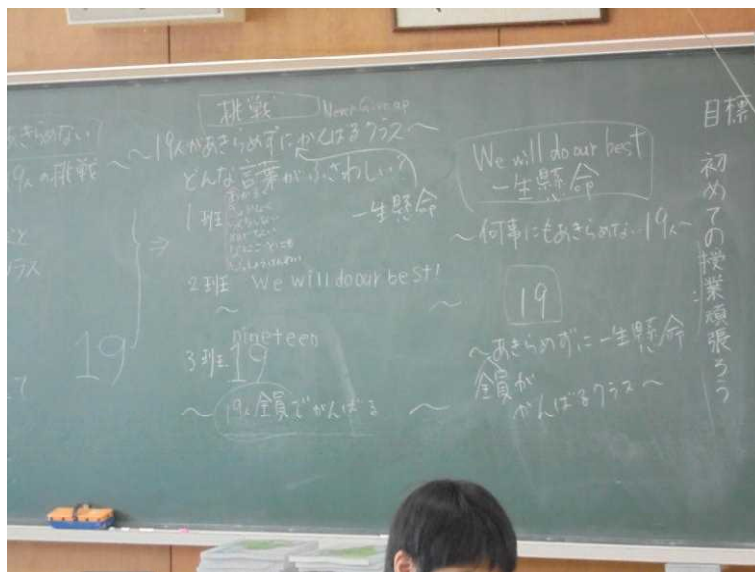 目標 初めての授業頑張ろう
あきらめない
19人の挑戦
こと
ラス
19
て
挑戦 Never Give up
〜19人があきらめずにがんばるクラス〜
どんな言葉がふさわしい?
1班
一生懸命
2班 We will do our best!
〜
nineteen
3班 19
〜19人全員でがんばる 〜
We will do our best
一生懸命
〜何事にもあきらめない19人〜
19
〜あきらめずに一生懸命
全員が
がんばるクラス〜